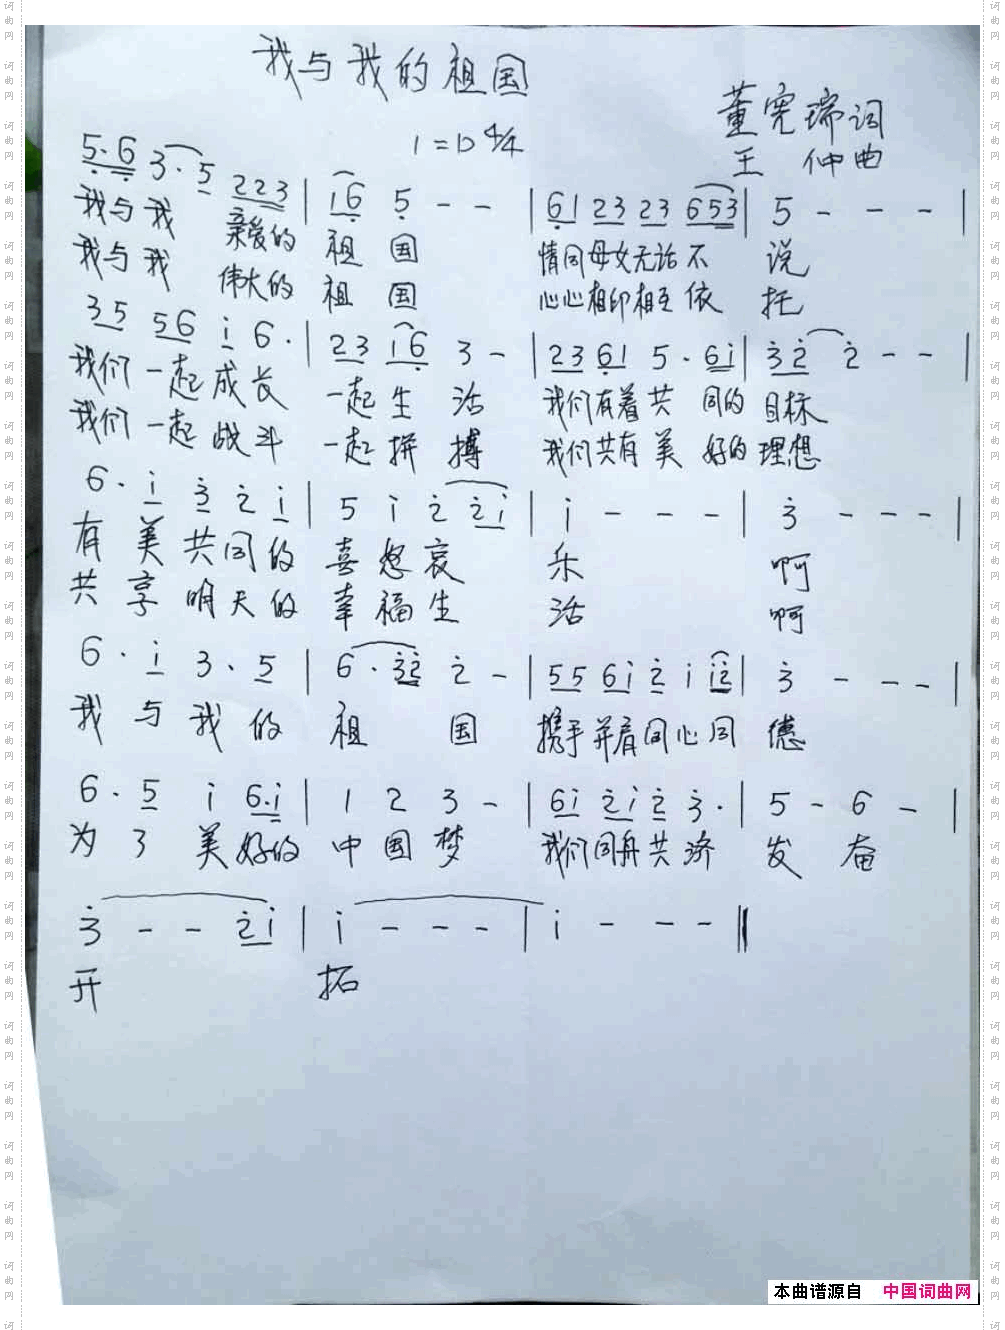 我与我的祖国
1=D 4/4
董宪瑞词
王 仲曲
5·6 3·5 223 | i6 5 - - | 61 23 23 653 | 5 - - - |
我与我 亲爱的 祖 国 情同母女无话不 说
我与我 伟大的 祖 国 心心相印相互依 托
35 56 i 6· | 23 i6 3 - | 23 61 5·6i | 3̇2̇ 2̇ - - |
我们一起成长 一起生 活 我们有着共 同的 目标
我们一起战斗 一起拼 搏 我们共有美 好的 理想
6· i 3̇ 2̇ i | 5 i 2̇ 2̇i | i - - - | 3̇ - - - |
有 美 共同的 喜怒哀 乐 啊
共 享 明天的 幸福生 活 啊
6· i 3· 5 | 6·3̇2̇ 2̇ - | 55 6i 2̇ i i2̇ | 3̇ - - - |
我 与 我 的 祖 国 携手并肩同心同 德
6· 5 i 6·i | 1 2 3 - | 6i 2̇i 2̇ 3̇· | 5 - 6 - |
为 了 美好的 中国梦 我们同舟共济 发 奋
3̇ - - 2̇i | i - - - | i - - - ‖
开 拓
本曲谱源自 中国词曲网